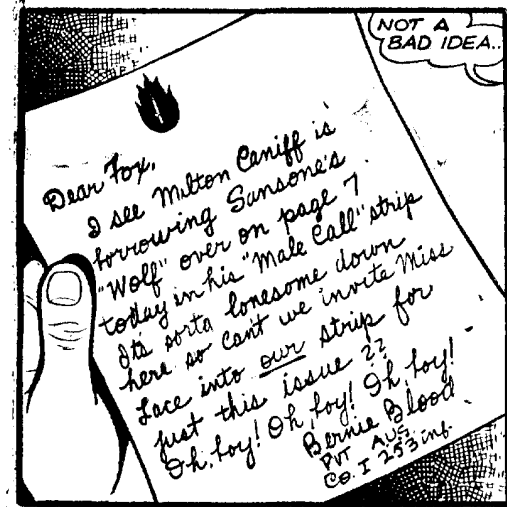 NOT A
BAD IDEA..
Dear Fox,
I see Milton Caniff is
borrowing Sansone's
"Wolf" over on page 7
today in his "Male Call" strip
Its sorta lonesome down
here so cant we invite Miss
Lace into our strip for
just this issue ??
Oh, boy! Oh, boy! Oh, boy!
Bernie Blood
PVT AUS
Co. I 253 inf.